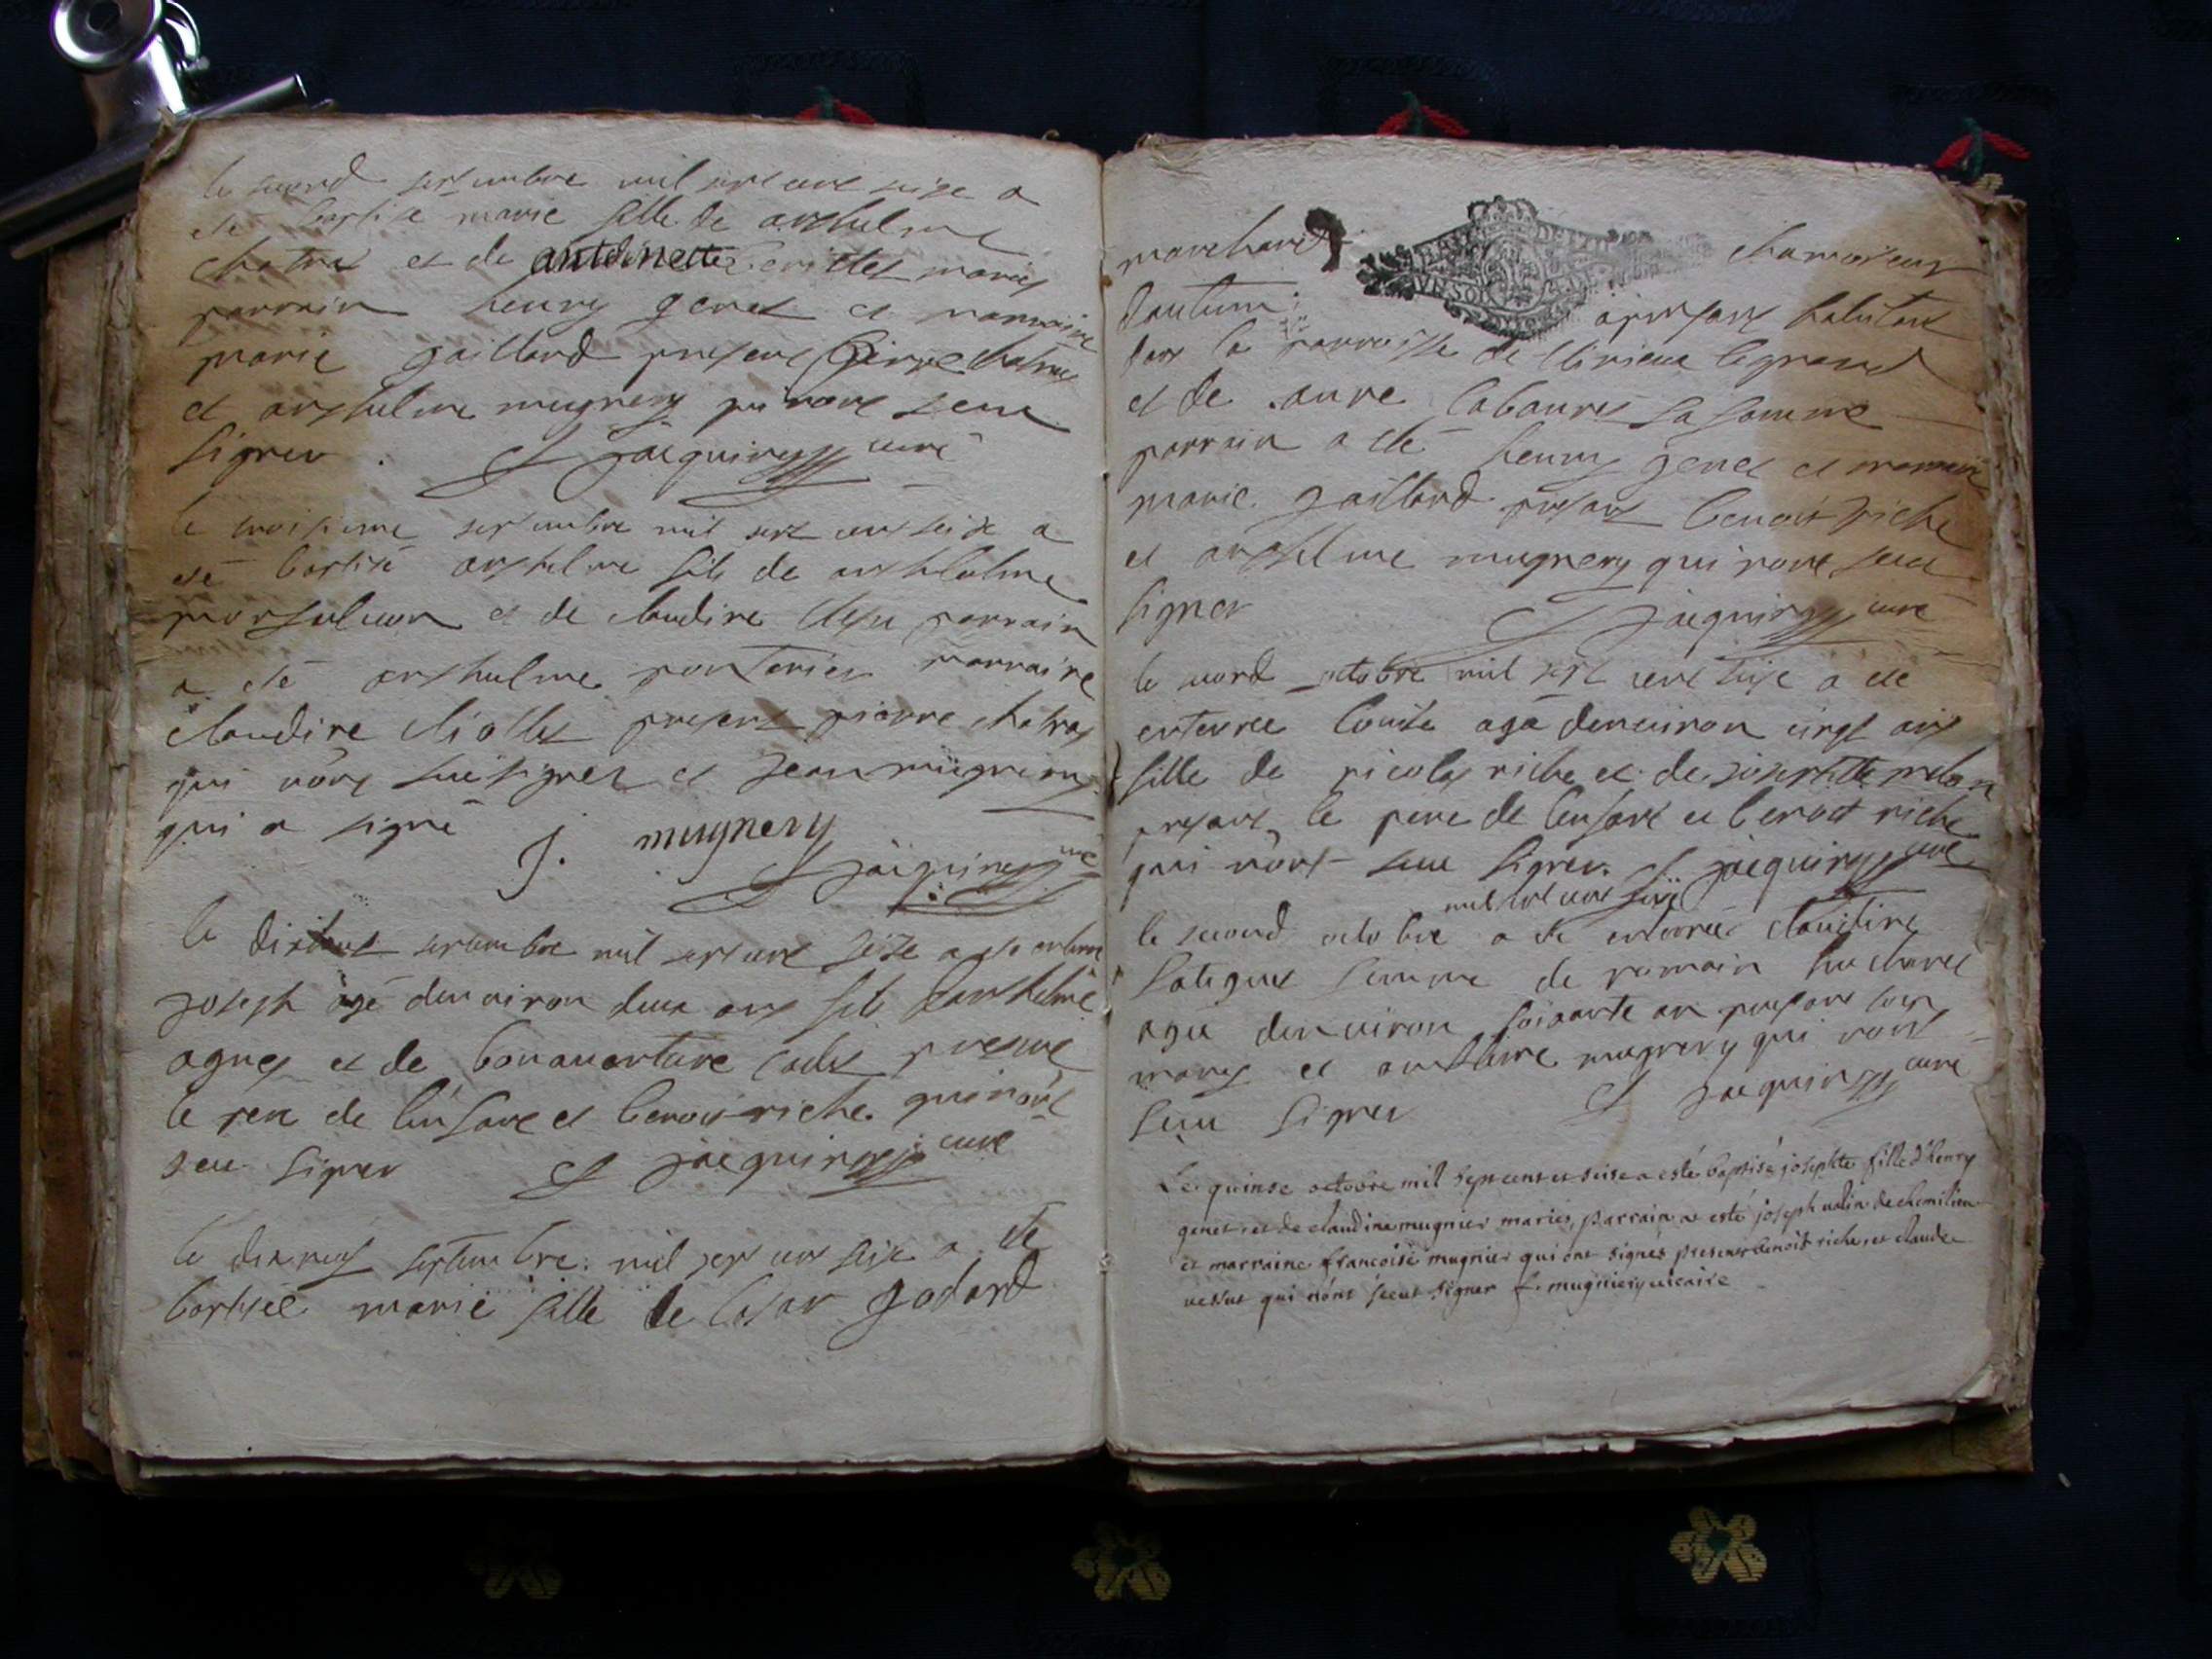 le second septembre mil sept cent seize a
esté baptisé marie fille de anthelme
chatras et de antoinette mariés
parrain henry genet et marraine
marie gaillard presens pierre chatras
et anthelme mugnery qui nont seeu
signer jacquiny curé
le troisieme septembre mil sept cent seize a
esté baptisé anthelme fils de anthelme
et de claudine parrain
a esté anthelme marraine
claudine presens pierre chatras
qui nont sceu signer et jean mugniery
qui a signé
j. mugnery
jacquiny curé
le septembre mil sept cent seize a esté enterré
joseph agé denviron deux ans fils danthelme
agnes et de bonaventure presens
le pere de lenfant et benoit riche qui nont
seeu signer jacquiny curé
le dixneuf septembre mil sept cent seize a esté
baptisée marie fille de lasar godard
marchand chamoiseur
dautun apresent habitant
dans la parroisse de virieux le grand
et de anne sa famme
parrain a esté henry genet et marraine
marie gaillard presens benoit riche
et anthelme mugnery qui nont seeu
signer jacquiny curé
le second octobre mil sept cent seize a esté
enterree louise agé denviron vingt ans
fille de nicolas riche et de josephtte
presens le pere de lenfant et benoit riche
qui nont seeu signer jacquiny curé
mil sept cent seize
le second octobre a esté enterrée claudine
femme de romain
agée denviron soixante an presens son
mary et anthelme mugnery qui nont
seeu signer jacquiny curé
Le quinse octobre mil sept cent et seise a esté baptisé josephte fille d'henry
genet et de claudine mugnier mariés, parrain a esté joseph de chemilieu
et marraine francoise mugnier qui ont signés presens benoit riche, et claude
vessut qui n'ont sceut signer f. mugniery vicaire